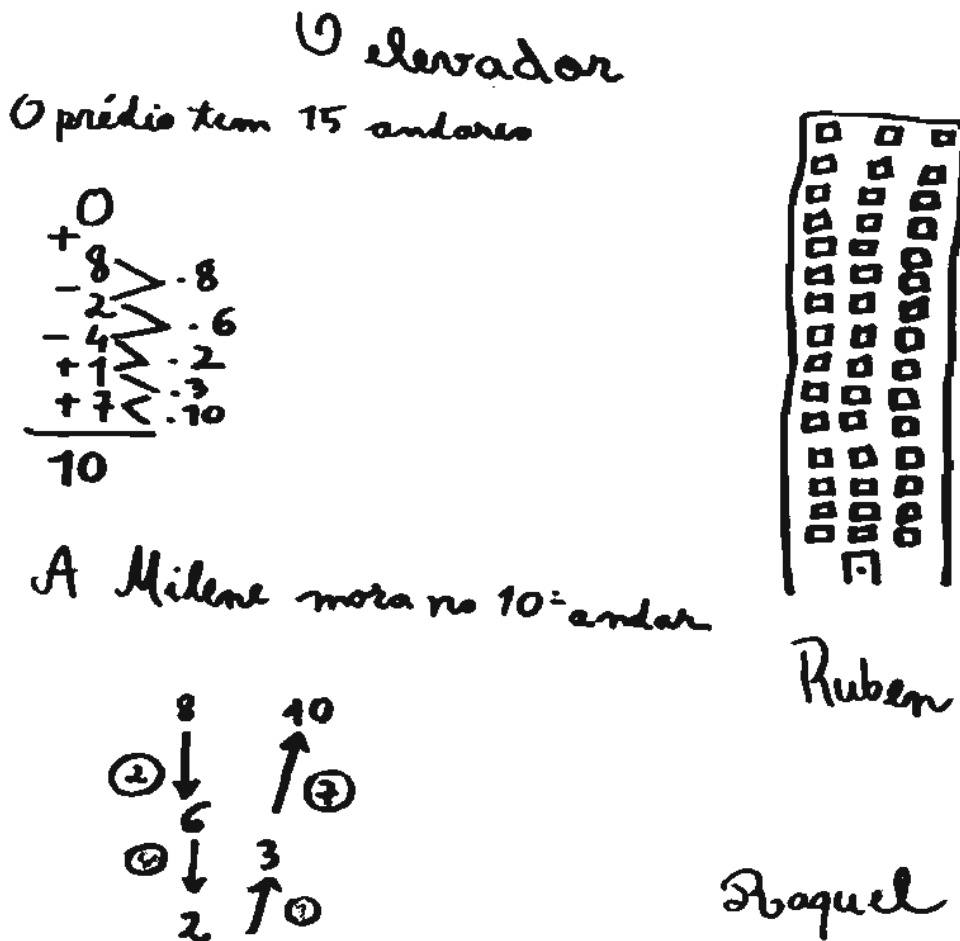 O elevador
O prédio tem 15 andares
0
+
8 . 8
- 2
. 6
- 4
. 2
+ 1
. 3
+ 7 . 10
10
A Milene mora no 10º andar
Ruben
8 10
2 7
6
4 3
1
2
Raquel